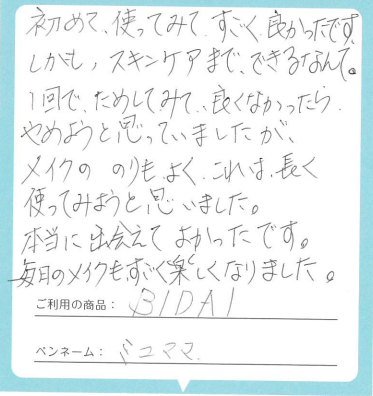 初めて、使ってみて、すごく良かったです
しかも、スキンケアまで、できるなんて。
1回で、ためしてみて、良くなかったら、
やめようと思っていましたが、
メイクの のりもよく、これは、長く
使ってみようと思いました。
本当に出会えて よかったです。
毎日のメイクもすごく楽しくなりました。
ご利用の商品： BIDAI
ペンネーム： ミユママ.